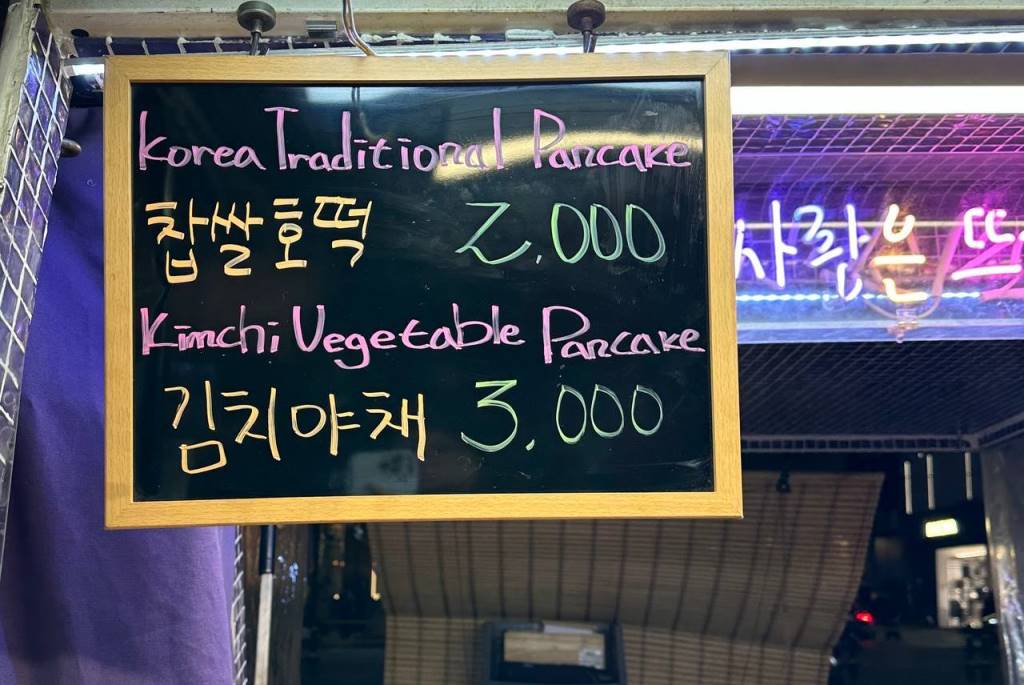 Korea Traditional Pancake
찹쌀호떡 2,000
Kimchi Vegetable Pancake
김치야채 3.000
사랑은